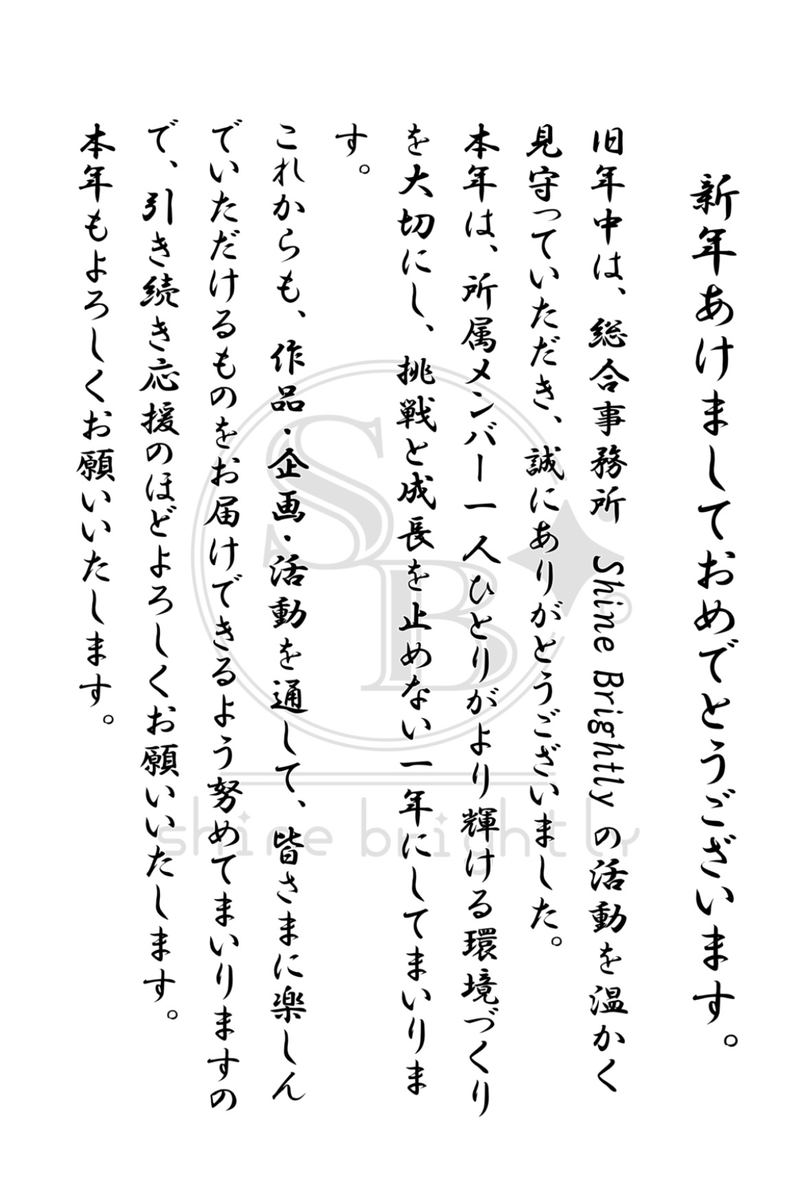 新年あけましておめでとうございます。
旧年中は、総合事務所　Shine Brightly の活動を温かく
見守っていただき、誠にありがとうございました。
本年は、所属メンバー一人ひとりがより輝ける環境づくり
を大切にし、挑戦と成長を止めない一年にしてまいりま
す。
これからも、作品・企画・活動を通して、皆さまに楽しん
でいただけるものをお届けできるよう努めてまいりますの
で、引き続き応援のほどよろしくお願いいたします。
本年もよろしくお願いいたします。
SB
shine brightly